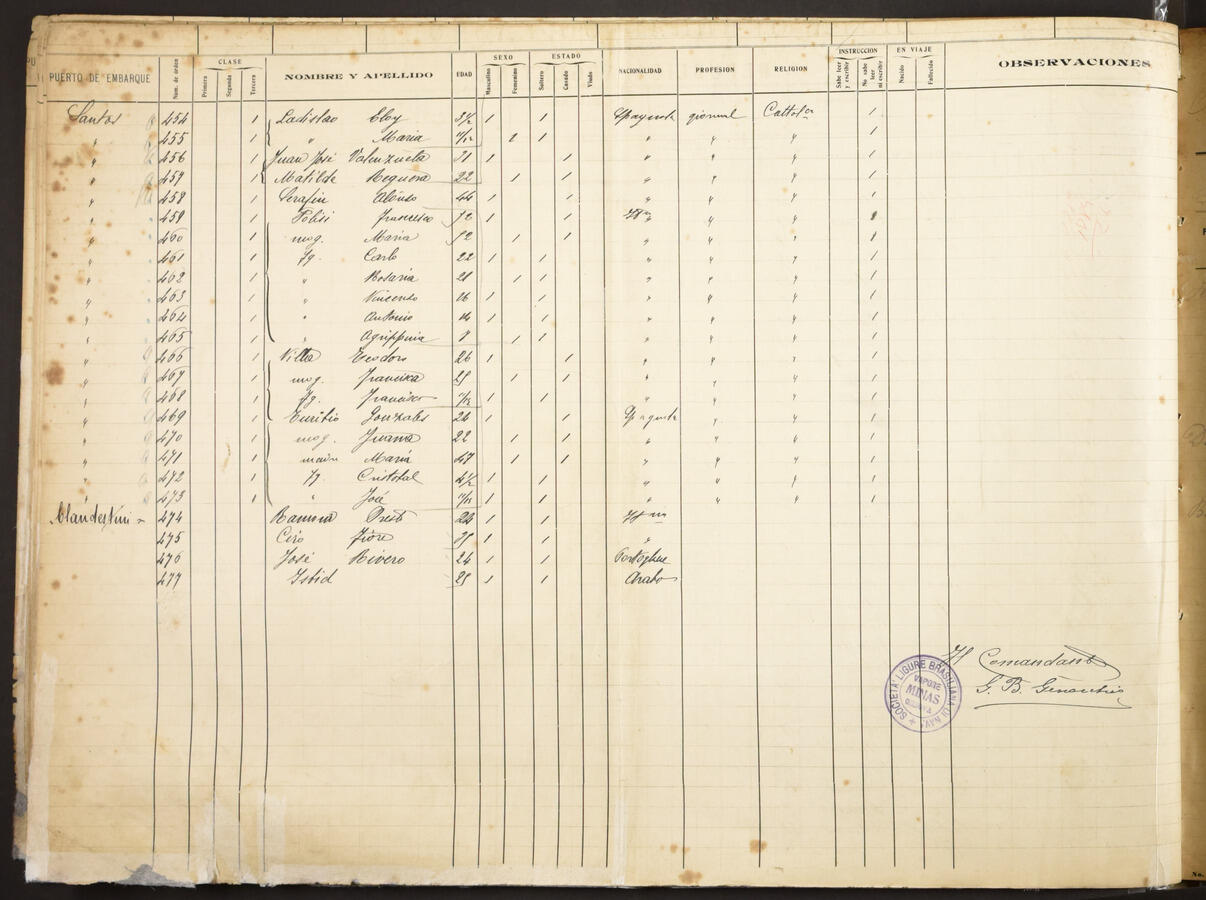 PUERTO DE EMBARQUE Num. de órden CLASE Primera Segunda Tercera NOMBRE Y APELLIDO EDAD SEXO Masculino Femenino ESTADO Soltero Casado Viudo NACIONALIDAD PROFESION RELIGION INSTRUCCION Sabe leer y escribir No sabe leer ni escribir EN VIAJE Nacido Fallecido OBSERVACIONES
Santos 454 1 Ladislao Eloy 1 1 1
" 455 1 " Maria 11/12 1 " " " 1
" 456 1 Juan José Valenzuela 31 1 1 " " " 1
" 457 1 Matilde Requena 22 1 1 " " " 1
" 458 1 Serafin Alonso 44 1 1 " " " 1
" 459 1 Polisi Francesco 52 1 1 " " 1
" 460 1 mog. Maria 52 1 1 " " " 1
" 461 1 fg. Carlo 22 1 1 " " " 1
" 462 1 " Rosaria 1 1 " " " 1
" 463 1 " Vincenzo 16 1 1 " " " 1
" 464 1 " Antonio 14 1 1 " " " 1
" 465 1 " Agrippina 8 1 1 " " " 1
" 466 1 Villa Teodoro 26 1 1 " " " 1
" 467 1 mog. Francisca 25 1 1 " " " 1
" 468 1 fg. Francisco 1 1 " " " 1
" 469 1 Euribio Gonzales 1 1 " " 1
" 470 1 mog. Juana 22 1 1 " " " 1
" 471 1 Maria 47 1 1 " " " 1
" 472 1 fg. Cristobal 1 1 " " " 1
" 473 1 " José 11/12 1 1 " " " 1
Clandestini 474 Ramona 1 1
475 Ciro Fiore 1 1 "
476 José Rivero 24 1 1 Portoghese
477 25 1 1 Arabo
Il Comandante
G. B.
SOCIETÀ LIGURE BRASILIANA DI NAV.
VAPORE
MINAS